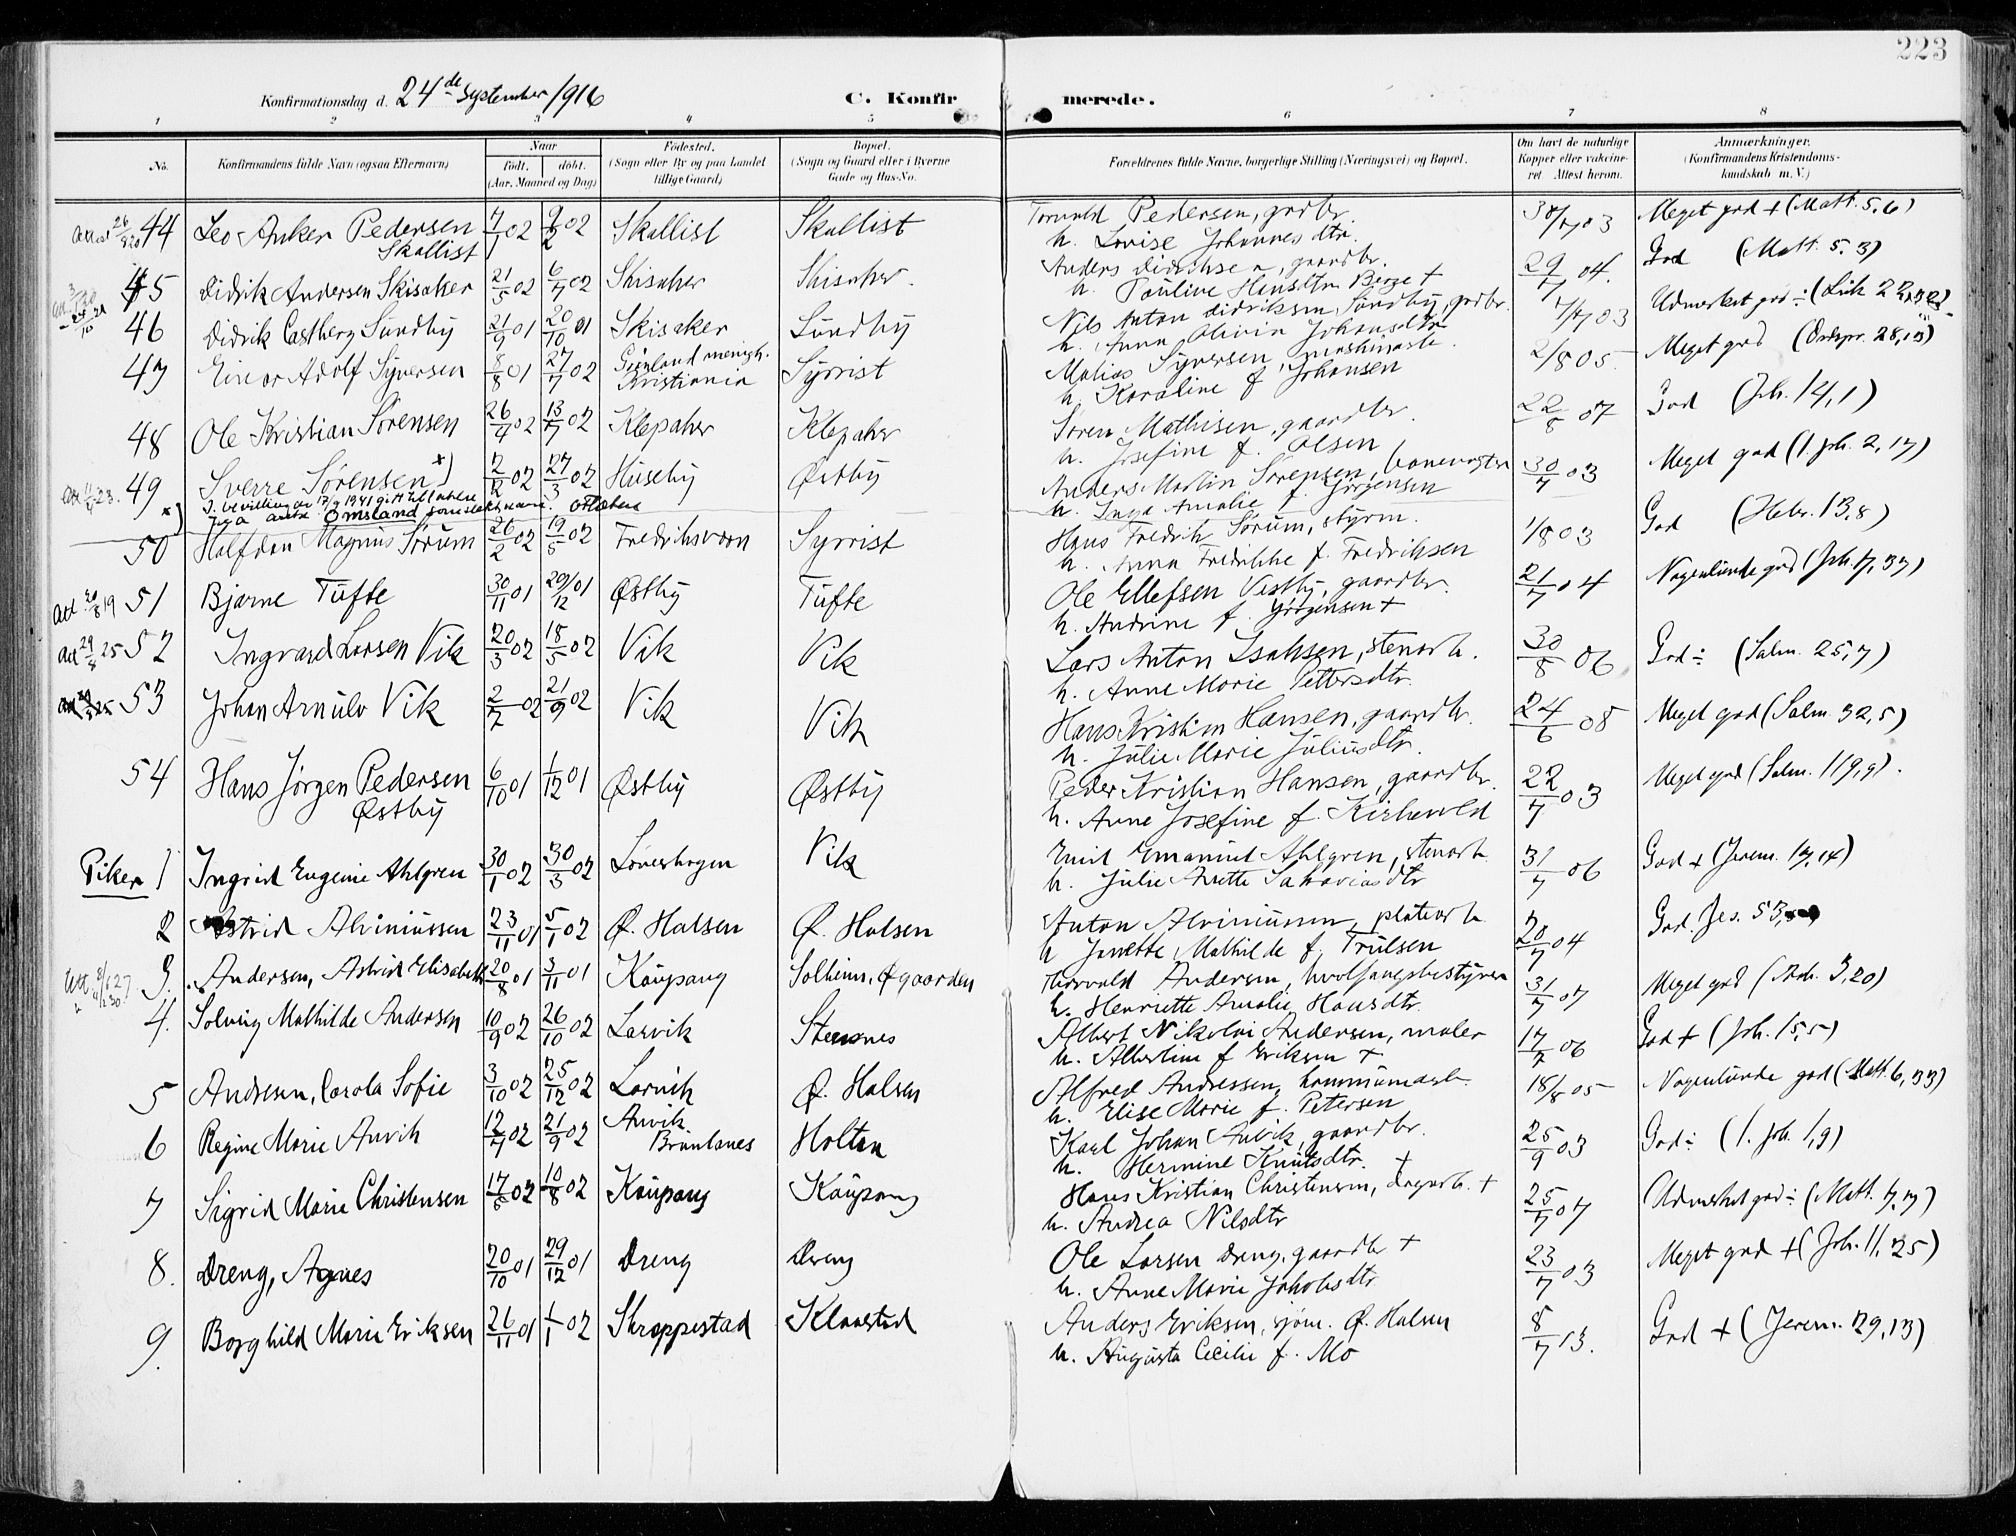 223
Konfirmationsdag d. 24de September 1916
C. Konfirmerede.
1 2 3 4 5 6 7 8
No. Konfirmandens fulde Navn (ogsaa Efternavn) Naar født. døbt. (Aar, Maaned og Dag) Fødested. (Sogn eller By og paa Landet tillige Gaard) Bopæl. (Sogn og Gaard eller i Byerne Gade og Hus-No. Forældrenes fulde Navne, borgerlige Stilling (Næringsvei) og Bopæl. Om havt de naturlige Kopper eller vakcineret Attest herom. Anmærkninger. (Konfirmandens Kristendomskundskab m. V.)
44 Leo Anker Pedersen Skallist 7/1 02 9/2 02 Skallist Skallist Torvald Pedersen, grdbr. 30/7 03 Meget god + (Matt. 5,6)
h. Lovise Johannesdtr.
45 Didrik Andersen Skisaker 21/5 02 6/7 02 Skisaker Skisaker. Anders Didriksen, gaardbr. 29/7 04. God (Matt. 5.3)
h. Pauline Hensdtr. Berge +
46 Didrik Castberg Sundby 21/9 01 20/10 01 Skisaker Sundby Nils Anton Didriksen Sundby, grdbr. 7/7 03 Udmerket god ÷ (Luk 22,32)
h. Anna Olivia Johansdtr
47 Einar Adolf Syversen 8/8 01 27/7 02 Grønland menigh. Kristiania Syrrist Matias Syversen, maskinarb. 2/8 05 Meget god (Ordspr. 28,13)
h. Karoline f Johansen
48 Ole Kristian Sørensen 26/4 02 13/7 02 Klepaker Klepaker Søren Mathisen, gaardbr. 22/8 07 God (Joh. 14,1)
h. Josefine f. Olsen
49 Sverre Sørensen x) 2/2 02 27/3 02 Huseby Østby Anders Martin Sørensen, banevogter 30/7 03 Meget god (1. Joh. 2,17)
h. Inga Amalie f. Jørgensen
x) I. bevilling av 17/9 1941 gitt til at Omsland som slektsnavn.
50 Halfdan Magnus Sørum 26/2 02 19/5 02 Fredriksværn Syrrist Hans Fredrik Sørum, styrm. 1/8 03 God (Hebr. 13,8)
h. Anna Fredrikke f. Fredriksen
Att 20/8 19 51 Bjarne Tufte 30/11 01 29/12 01 Østby Tufte Ole Ellefsen Vestby, gaardbr. 21/7 04 Nogenlunde god (Joh. 7,37)
h. Andrine f. Jørgensen +
Att 29/8 25 52 Ingvard Larsen Vik 20/3 02 18/5 02 Vik Vik Lars Anton Isaksen, stenarb. 30/8 06 God ÷ (Salm. 25,7)
h. Anne Marie Pettersdtr.
53 Johan Arnulv Vik 2/7 02 21/9 02 Vik Vik Hans Kristian Hansen, gaardbr. 24/6 08 Meget god (Salm. 32,5)
h. Julie Marie Juliusdtr.
54 Hans Jørgen Pedersen Østby 6/10 01 1/12 01 Østby Østby Peder Kristian Hansen, gaardbr. 22/7 03 Meget god (Salm. 119,9).
h. Anne Josefine f. Kirkevold
Piker 1 Ingrid Eugenie Ahlgren 30/1 02 30/3 02 Løveskogen Vik Emil Emanuel Ahlgren, stenarb. 31/7 06 God + (Jerem. 17,14)
h. Julie Anette Sakariasdtr
2 Astrid Alvimussen 23/11 01 5/1 02 Ø. Halsen Ø. Halsen Anton Alvimussen, platearb. 20/7 04 God. Jes. 53,
h Janette Mathilde f. Trulsen
3. Andersen, Astrid Elisabeth 20/8 01 3/11 01 Kaupang Solheim, Øgaarden Thorvald Andersen, hvalfangstbestyrer 31/7 07 Meget god (Aab. 3,20)
h. Henriette Amalie Hansdtr.
4. Solveig Mathilde Andersen 10/9 02 26/10 02 Larvik Stensnes Albert Nikolai Andersen, maler 17/7 06 God + (Joh. 15,5)
h. Albertine f Eriksen +
5 Andresen, Carola Sofie 3/10 02 25/12 02 Larvik Ø. Halsen Alfred Andressen, kommunearb. 18/8 05 Nogenlunde god (Matt. 6,33)
h. Elise Marie f. Petersen
6 Regine Marie Anvik 12/7 02 21/9 02 Anvik Brunlanes Holtan Karl Johan Anvik, gaardbr. 25/9 03 God ÷ (1. Joh. 1,9)
h. Hermine Knutsdtr. +
7 Sigrid Marie Christensen 17/6 02 10/8 02 Kaupang Kaupang Hans Kristian Christensen, dagarb. + 25/7 07 Udmerket god ÷ (Matt. 7,7)
h. Andrea Nilsdtr
8. Dreng, Agnes 20/10 01 29/12 01 Dreng Dreng Ole Larsen Dreng, gaardbr + 23/7 03 Meget god + (Joh. 11,25)
h. Anne Marie Jakobsdtr
9. Borghild Marie Eriksen 26/11 01 1/1 02 Skreppestad Klaastad Anders Eriksen, sjøm. Ø. Halsen 8/7 13. God + (Jerem. 29,13)
h. Augusta Cecilie f. Mo